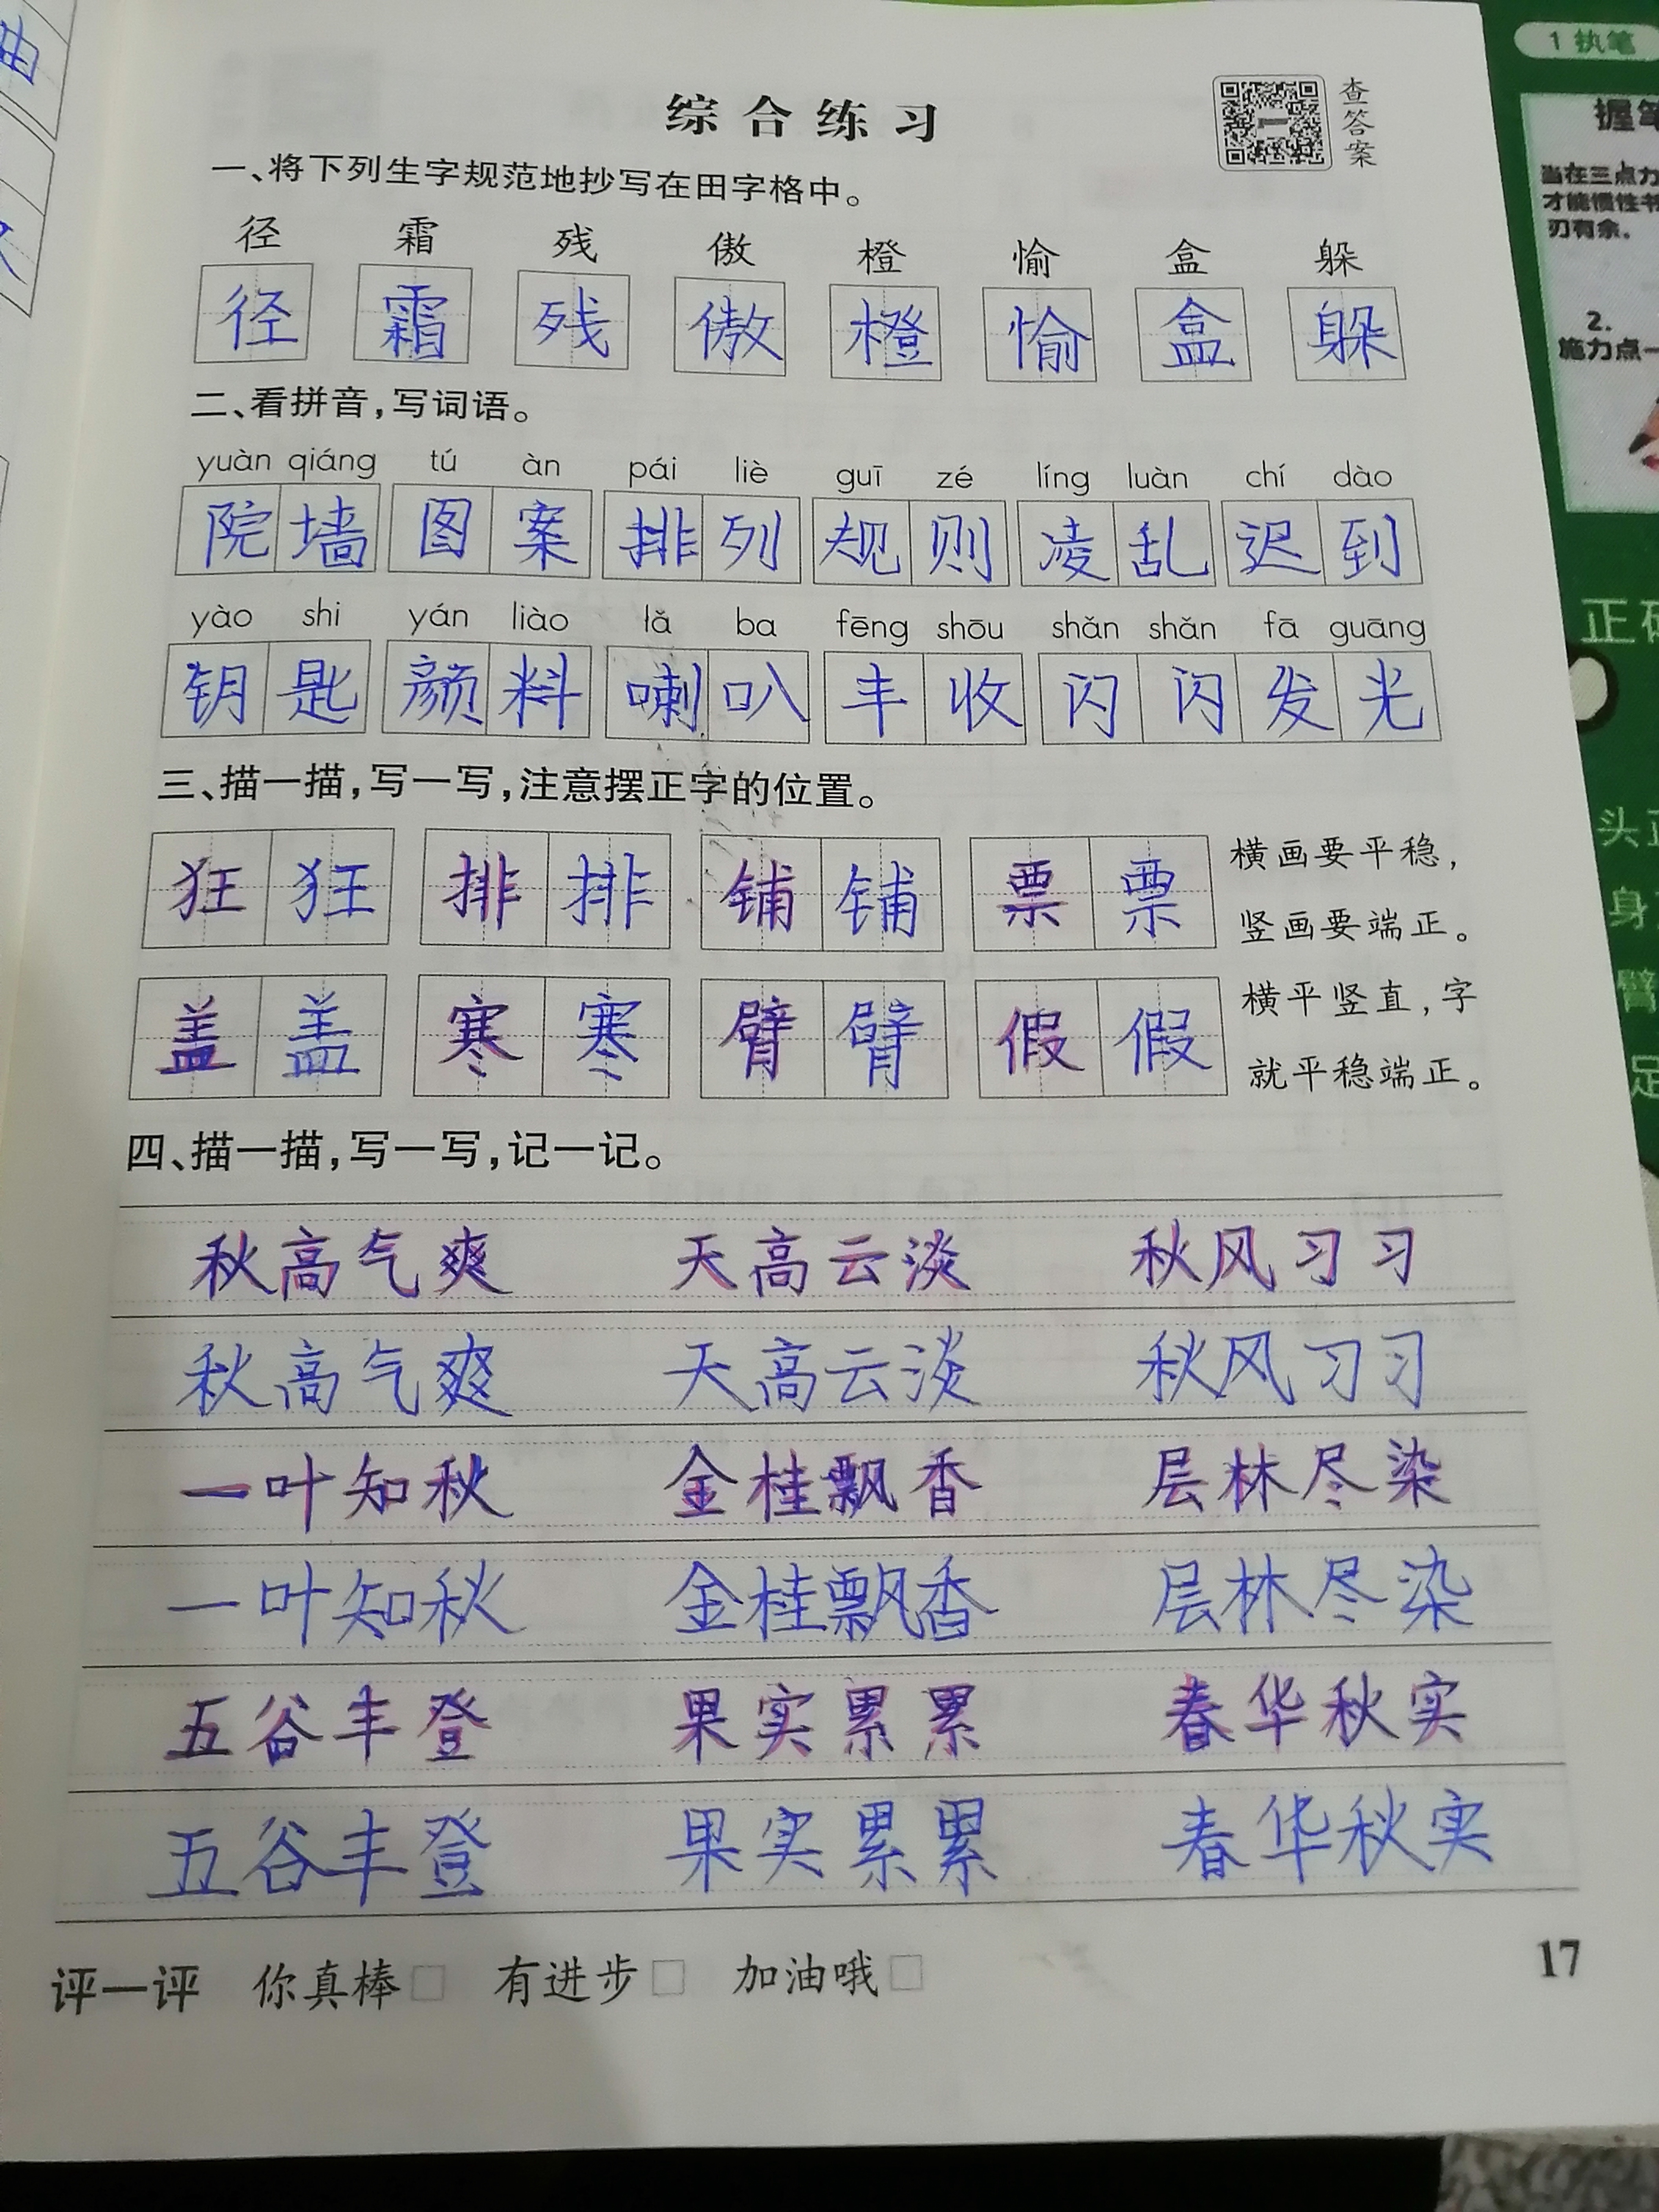 综合练习
查答案
一、将下列生字规范地抄写在田字格中。
径 霜 残 傲 橙 愉 盒 躲
径 霜 残 傲 橙 愉 盒 躲
二、看拼音,写词语。
yuàn qiáng tú àn pái liè guī zé líng luàn chí dào
院墙 图案 排列 规则 凌乱 迟到
yào shi yán liào lǎ ba fēng shōu shǎn shǎn fā guāng
钥匙 颜料 喇叭 丰收 闪闪发光
三、描一描,写一写,注意摆正字的位置。
狂狂 排排 铺铺 票票
横画要平稳,
竖画要端正。
盖盖 寒寒 臂臂 假假
横平竖直,字
就平稳端正。
四、描一描,写一写,记一记。
秋高气爽 天高云淡 秋风习习
秋高气爽 天高云淡 秋风习习
一叶知秋 金桂飘香 层林尽染
一叶知秋 金桂飘香 层林尽染
五谷丰登 果实累累 春华秋实
五谷丰登 果实累累 春华秋实
评一评 你真棒□ 有进步□ 加油哦□
17
1 执笔
握笔
当在三点力
才能惯性书
刃有余。
2.
施力点一
正确
头正
身
臂
足